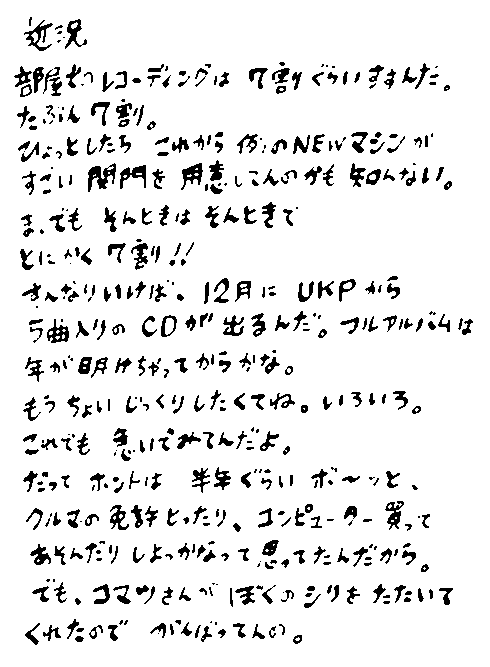 近況
部屋でのレコーディングは 7割ぐらいすすんだ。
たぶん 7割。
ひょっとしたら これから 例のNEWマシンが
すごい 関門を 用意してんのかも 知んない。
ま、でも そんときは そんときで
とにかく 7割!!
すんなりいけば、12月に UKPから
5曲入りの CDが 出るんだ。フルアルバムは
年が明けちゃってからかな。
もうちょい じっくりしたくてね。いろいろ。
これでも 急いでみてんだよ。
だって ホントは 半年ぐらい ボ〜ッと、
クルマの免許とったり、コンピューター買って
あそんだりしよっかなって思ってたんだから。
でも、コマツさんが ぼくのシリを たたいて
くれたので がんばってんの。